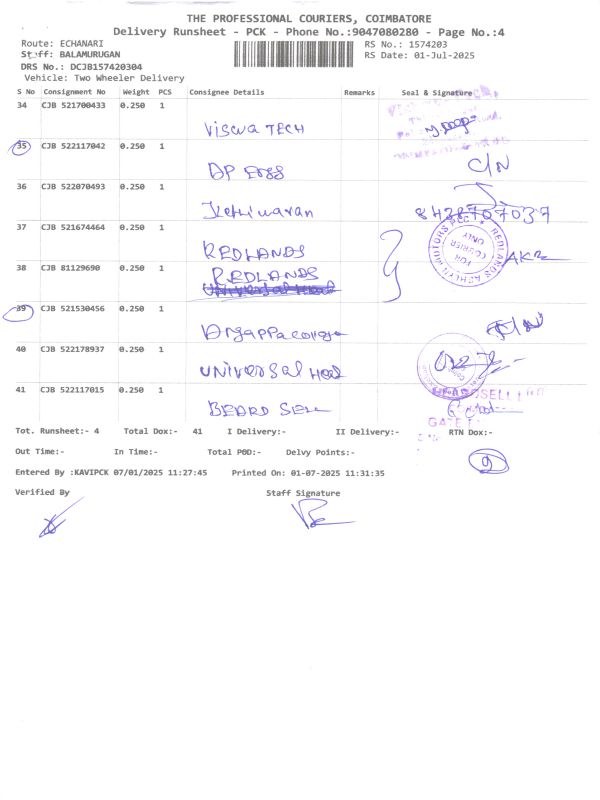 THE PROFESSIONAL COURIERS, COIMBATORE
Delivery Runsheet - PCK - Phone No.:9047080280 - Page No.:4
Route: ECHANARI RS No.: 1574203
Staff: BALAMURUGAN RS Date: 01-Jul-2025
DRS No.: DCJB157420304
Vehicle: Two Wheeler Delivery
S No Consignment No Weight PCS Consignee Details Remarks Seal & Signature
34 CJB 521700433 0.250 1
Viswa TECH
35 CJB 522117042 0.250 1
C/N
36 CJB 522070493 0.250 1
8428707037
37 CJB 521674464 0.250 1
REDLANDS
REDLANDS MOTORS
FOR COURIER ONLY
38 CJB 81129690 0.250 1
REDLANDS
39 CJB 521530456 0.250 1
40 CJB 522178937 0.250 1
universal
41 CJB 522117015 0.250 1
Tot. Runsheet:- 4 Total Dox:- 41 I Delivery:- II Delivery:- RTN Dox:-
Out Time:- In Time:- Total POD:- Delvy Points:-
Entered By :KAVIPCK 07/01/2025 11:27:45 Printed On: 01-07-2025 11:31:35
Verified By Staff Signature